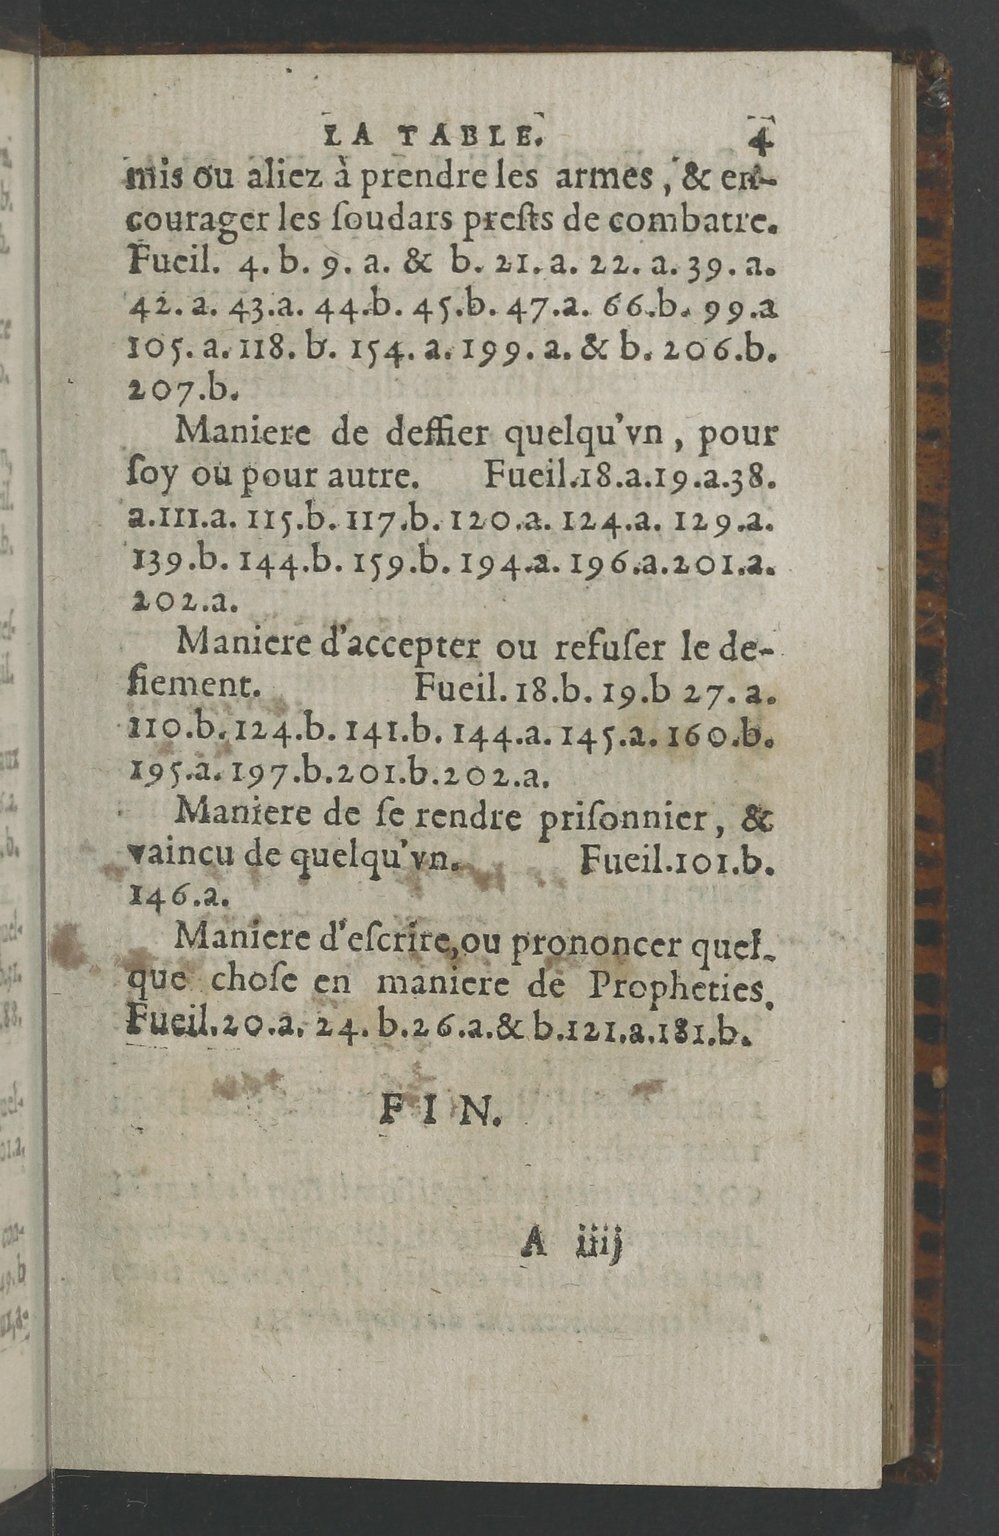 LA TABLE. 4
mis ou aliez à prendre les armes, & en-
courager les ſoudars preſts de combatre.
Fueil. 4. b. 9. a. & b. 21. a. 22. a. 39. a.
42. a. 43.a. 44.b. 45.b. 47.a. 66.b. 99.a
105. a. 118. b. 154. a. 199. a. & b. 206.b.
207.b.
Maniere de deffier quelqu'vn, pour
ſoy ou pour autre. Fueil.18.a.19.a.38.
a.111.a. 115.b. 117.b. 120.a. 124.a. 129.a.
139.b. 144.b. 159.b. 194.a. 196.a.201.a.
202.a.
Maniere d'accepter ou refuſer le de-
fiement. Fueil. 18.b. 19.b 27. a.
110.b. 124.b. 141.b. 144.a. 145.a. 160.b.
195.a. 197.b.201.b.202.a.
Maniere de ſe rendre priſonnier, &
vaincu de quelqu'vn. Fueil.101.b.
146.a.
Maniere d'eſcrire,ou prononcer quel-
que choſe en maniere de Propheties.
Fueil.20.a. 24. b.26.a.& b.121.a.181.b.
FIN.
A iiij